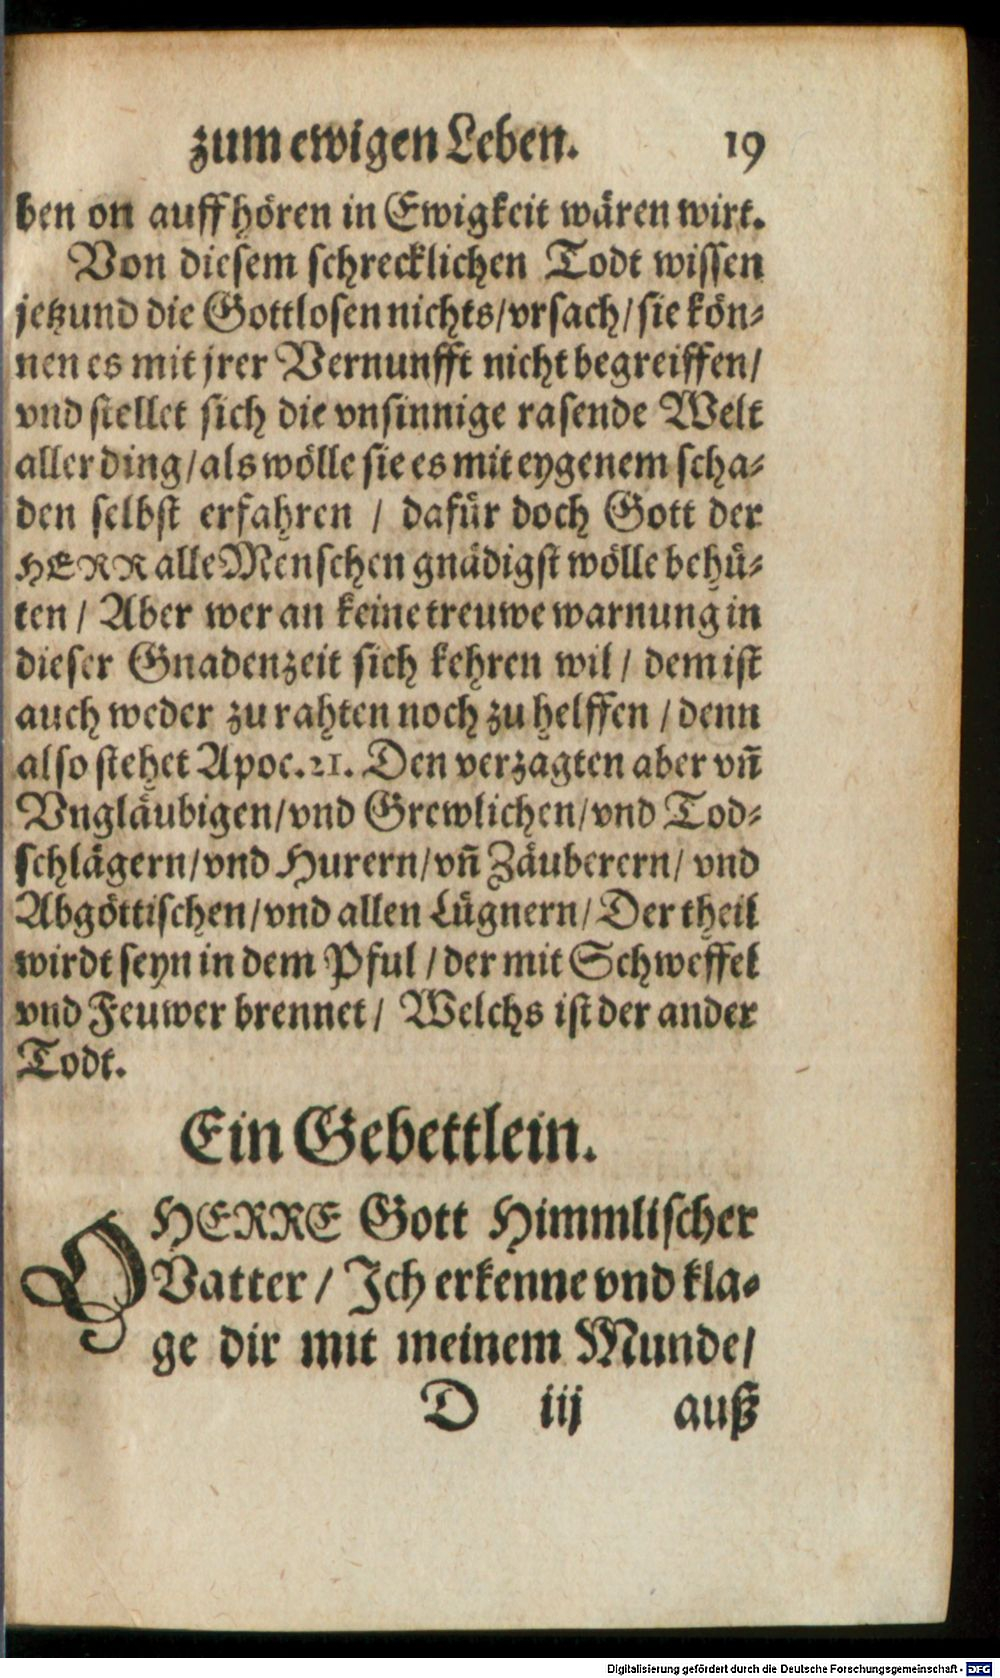 zum ewigen Leben. 19
ben on auffhören in Ewigkeit wären wirt.
Von diesem schrecklichen Todt wissen
jetzund die Gottlosen nichts/ vrsach/ sie kön-
nen es mit jrer Vernunfft nicht begreiffen/
vnd stellet sich die vnsinnige rasende Welt
aller ding/ als wölle sie es mit eygenem scha-
den selbst erfahren / dafür doch Gott der
HERR alle Menschen gnädigst wölle behü-
ten / Aber wer an keine treuwe warnung in
dieser Gnadenzeit sich kehren wil / dem ist
auch weder zu rahten noch zu helffen / denn
also stehet Apoc. 21. Den verzagten aber vñ
Vngläubigen/ vnd Grewlichen/ vnd Tod-
schlägern/ vnd Hurern/ vñ Zäuberern/ vnd
Abgöttischen/ vnd allen Lügnern/ Der theil
wirdt seyn in dem Pful / der mit Schweffel
vnd Feuwer brennet / Welchs ist der ander
Todt.
Ein Gebettlein.
O HERRE Gott Himmlischer
Vatter / Ich erkenne vnd kla-
ge dir mit meinem Munde/
D iij auß
Digitalisierung gefördert durch die Deutsche Forschungsgemeinschaft - DFG